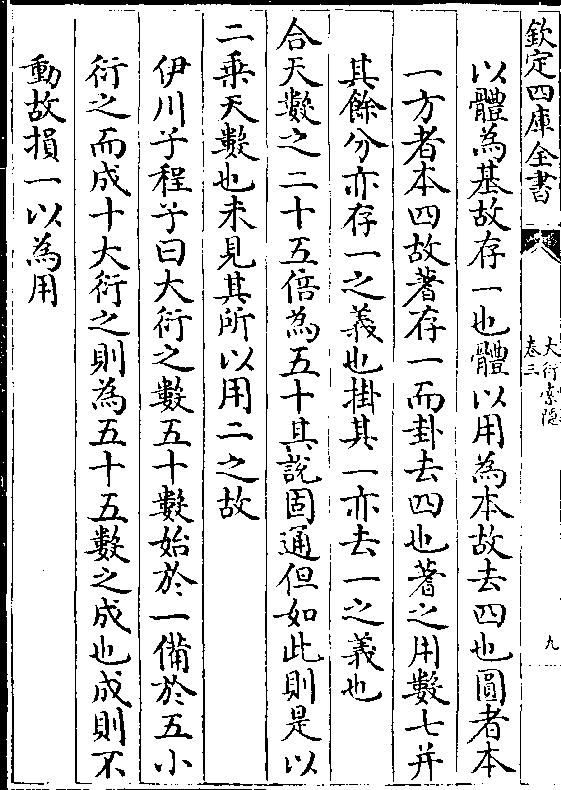 欽定四庫全書
大衍索隱
卷三
九
以體為基故存一也體以用為本故去四也圓者本
一方者本四故蓍存一而卦去四也蓍之用數七并
其餘分亦存一之義也掛其一亦去一之義也
合天數之二十五倍為五十其說固通但如此則是以
二乘天數也未見其所以用二之故
伊川子程子曰大衍之數五十數始於一備於五小
衍之而成十大衍之則為五十五數之成也成則不
動故損一以為用